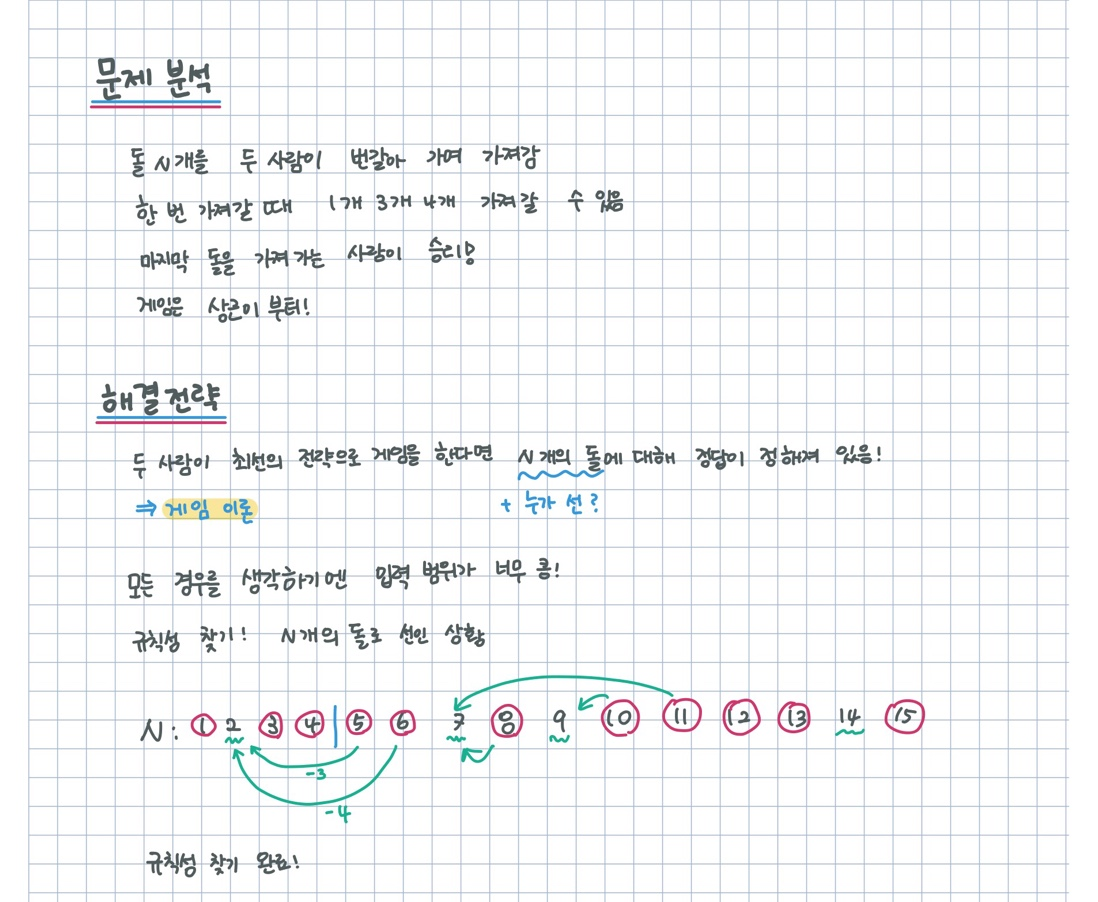 문제 분석
돌 N개를 두 사람이 번갈아 가며 가져감
한 번 가져갈 때 1개 3개 4개 가져갈 수 있음
마지막 돌을 가져가는 사람이 승리!
게임은 상근이부터!
해결전략
두 사람이 최선의 전략으로 게임을 한다면 N개의 돌에 대해 정답이 정해져 있음!
⇒ 게임 이론 + 누가 선?
모든 경우를 생각하기엔 입력 범위가 너무 큼!
규칙성 찾기! N개의 돌로 선인 상황
N: 1 2 3 4 5 6 7 8 9 10 11 12 13 14 15
-3
-4
규칙성 찾기 완료!